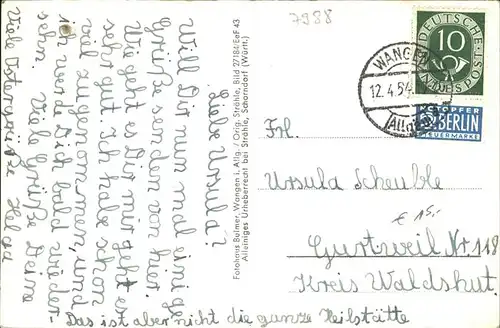 7988
Liebe Ursula!
Will Dir nun mal einige
Grüße senden von hier.
Wie geht es Dir mir geht es
sehr gut ich habe schon
viel zugenommen, und
ich werde Dich bald wieder-
sehn. Viele Grüße Deine
Viele Ostergrüße Helga
Das ist aber nicht die ganze Heilstätte
Fotohaus Bulmer, Wangen i. Allg. / Orig. Ströhle, Bild 27184/EoF 43
Alleiniges Urheberrecht bei Ströhle, Schorndorf (Württ.)
DEUTSCHE
BUNDESPOST
10
WANGEN
12.4.54
(Allgäu)
NOTOPFER
2 BERLIN
STEUERMARKE
Frl.
Ursula Scheuble
€ 15,-
Gurtweil Nr 118
Kreis Waldshut.